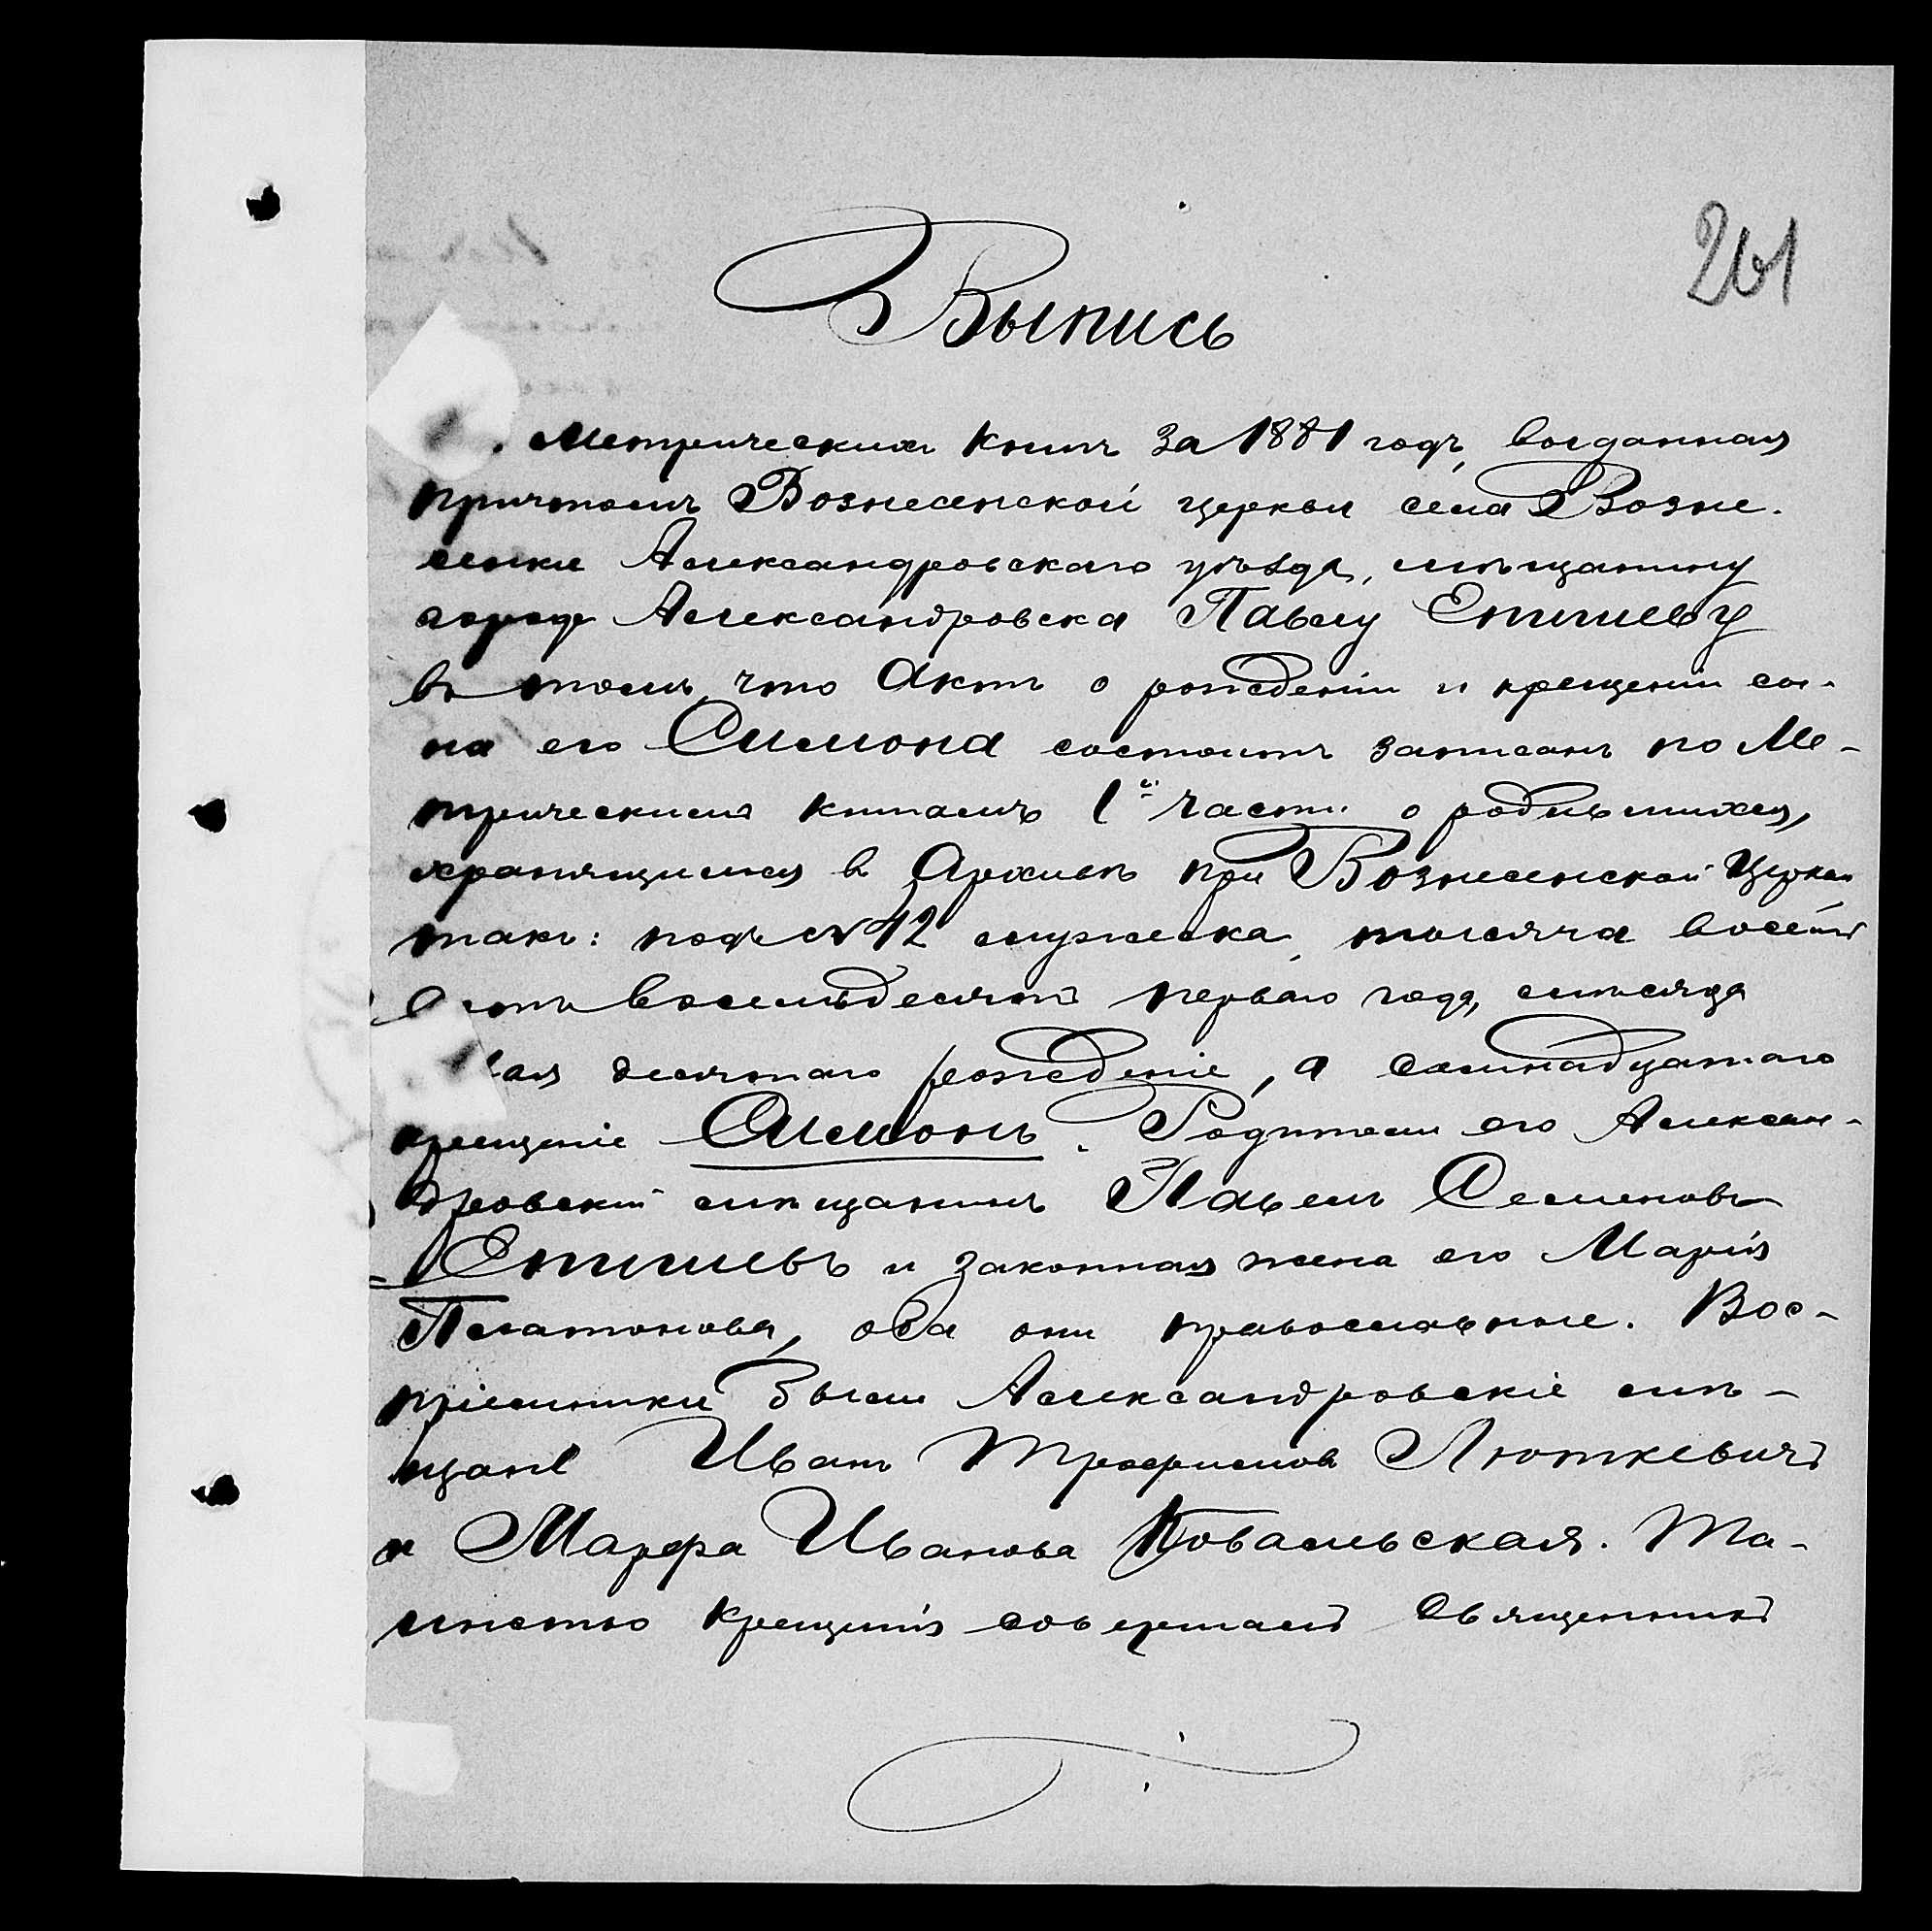 261
Выпись
Метрическихъ книгъ за 1881 годъ, выданная
причтомъ Вознесенской церкви села Возне-
сенки Александровскаго уѣзда, мѣщанину
города Александровска Павлу Епишеву
въ томъ, что Актъ о рожденіи и крещеніи сы-
на его Симона состоитъ записанъ по Ме-
трическимъ книгамъ 1й части о родившихся,
хранящимся въ Архивѣ при Вознесенской Церкви
такъ: подъ № 42 мужеска, тысяча восемь
сотъ восемьдесятъ перваго года, мѣсяца
Мая десятаго рожденіе, а семнадцатаго
крещеніе Симонъ. Родители его Алексан-
дровскій мѣщанинъ Павелъ Семеновъ
Епишевъ и законная жена его Марія
Платонова, оба они православные. Вос-
пріемники были Александровскіе мѣ-
щане Иванъ Трофимовъ Люткевичъ
и Марфа Иванова Ковальская. Та-
инство крещенія совершалъ Священникъ